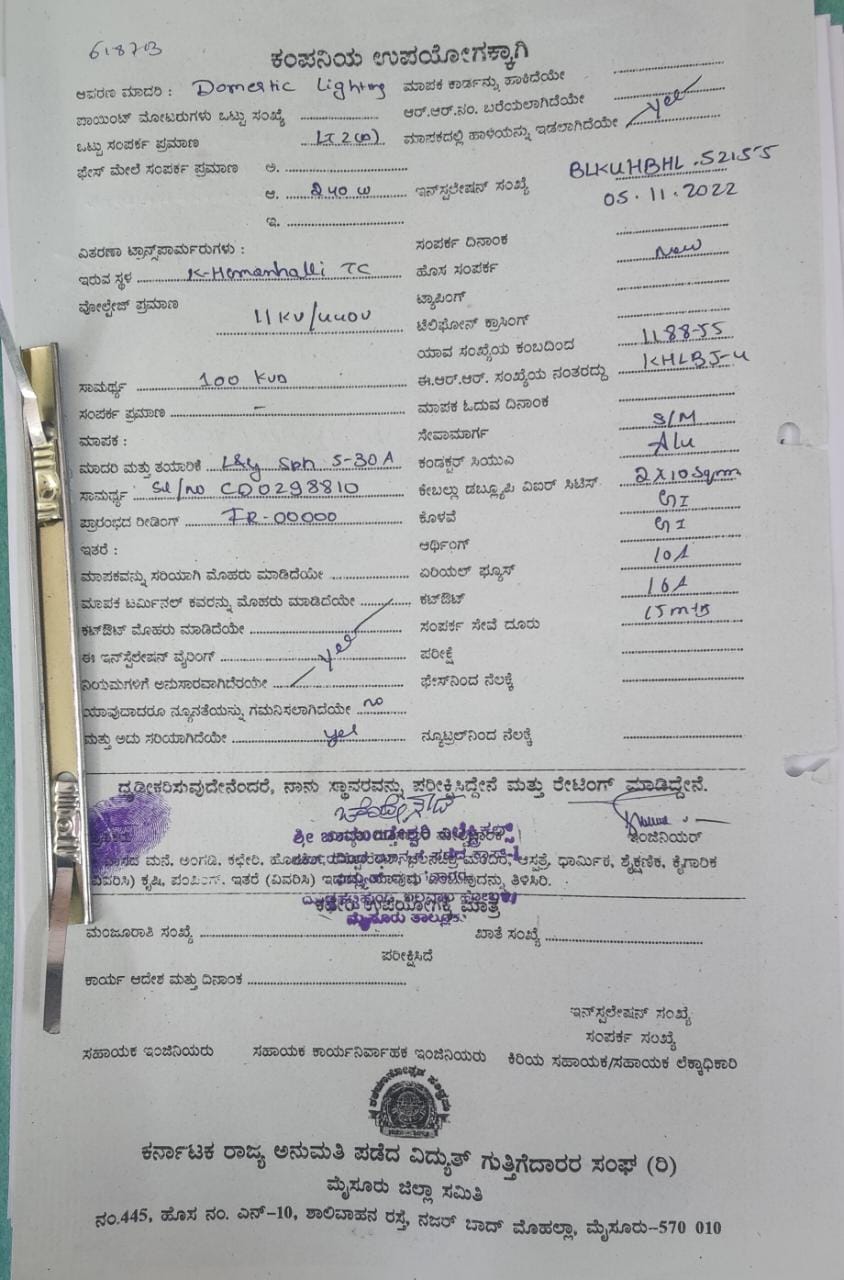 61873
ಕಂಪನಿಯ ಉಪಯೋಗಕ್ಕಾಗಿ
ಆವರಣ ಮಾದರಿ : Domestic Lighting ಮಾಪಕ ಕಾರ್ಡನ್ನು ಹಾಕಿದೆಯೇ
ಪಾಯಿಂಟ್ ಮೋಟರುಗಳು ಒಟ್ಟು ಸಂಖ್ಯೆ ಆರ್.ಆರ್.ನಂ. ಬರೆಯಲಾಗಿದೆಯೇ
ಒಟ್ಟು ಸಂಪರ್ಕ ಪ್ರಮಾಣ LT 2(a) ಮಾಪಕದಲ್ಲಿ ಹಾಳೆಯನ್ನು ಇಡಲಾಗಿದೆಯೇ yes
ಫೇಸ್ ಮೇಲೆ ಸಂಪರ್ಕ ಪ್ರಮಾಣ ಅ.
ಆ. 240 W ಇನ್‌ಸ್ಟಲೇಷನ್ ಸಂಖ್ಯೆ BLKUHBHL.52155
ಇ. 05.11.2022
ವಿತರಣಾ ಟ್ರಾನ್ಸ್‌ಫಾರ್ಮರುಗಳು : ಸಂಪರ್ಕ ದಿನಾಂಕ
ಇರುವ ಸ್ಥಳ K-Hemanhalli TC ಹೊಸ ಸಂಪರ್ಕ New
ವೋಲ್ಟೇಜ್ ಪ್ರಮಾಣ 11KV/440V ಟ್ಯಾಪಿಂಗ್
ಟೆಲಿಫೋನ್ ಕ್ರಾಸಿಂಗ್
ಯಾವ ಸಂಖ್ಯೆಯ ಕಂಬದಿಂದ 1188-55
ಸಾಮರ್ಥ್ಯ 100 KVA ಈ.ಆರ್.ಆರ್. ಸಂಖ್ಯೆಯ ನಂತರದ್ದು KHLBJ-4
ಸಂಪರ್ಕ ಪ್ರಮಾಣ - ಮಾಪಕ ಓದುವ ದಿನಾಂಕ
ಮಾಪಕ : ಸೇವಾಮಾರ್ಗ S/M
ಮಾದರಿ ಮತ್ತು ತಯಾರಿಕೆ L&G Sph 5-30A ಕಂಡಕ್ಟರ್ ಸಿಯುವಿ Alu
ಸಾಮರ್ಥ್ಯ Sl/no CD0298810 ಕೇಬಲ್ಲು ಡಬ್ಲ್ಯೂಪಿ ವಿಐರ್ ಸಿಟಿಸ್ 2X10 Sqmm
ಪ್ರಾರಂಭದ ರೀಡಿಂಗ್ IR-00000 ಕೊಳವೆ GI
ಇತರೆ : ಆರ್ಥಿಂಗ್ GI
ಮಾಪಕವನ್ನು ಸರಿಯಾಗಿ ಮೊಹರು ಮಾಡಿದೆಯೇ ಏರಿಯಲ್ ಫ್ಯೂಸ್ 10A
ಮಾಪಕ ಟರ್ಮಿನಲ್ ಕವರನ್ನು ಮೊಹರು ಮಾಡಿದೆಯೇ ಕಟ್‌ಔಟ್ 16A
ಕಟ್‌ಔಟ್ ಮೊಹರು ಮಾಡಿದೆಯೇ ಸಂಪರ್ಕ ಸೇವೆ ದೂರು 15mts
ಈ ಇನ್‌ಸ್ಟೆಲೇಷನ್ ವೈರಿಂಗ್ yes ಪರೀಕ್ಷೆ
ನಿಯಮಗಳಿಗೆ ಅನುಸಾರವಾಗಿದೆರಯೇ ಫೇಸ್‌ನಿಂದ ನೆಲಕ್ಕೆ
ಯಾವುದಾದರೂ ನ್ಯೂನತೆಯನ್ನು ಗಮನಿಸಲಾಗಿದೆಯೇ no
ಮತ್ತು ಅದು ಸರಿಯಾಗಿದೆಯೇ yes ನ್ಯೂಟ್ರಲ್‌ನಿಂದ ನೆಲಕ್ಕೆ
ದೃಢೀಕರಿಸುವುದೇನೆಂದರೆ, ನಾನು ಸ್ಥಾವರವನ್ನು ಪರೀಕ್ಷಿಸಿದ್ದೇನೆ ಮತ್ತು ರೇಟಿಂಗ್ ಮಾಡಿದ್ದೇನೆ.
ಶ್ರೀ ಚಾಮುಂಡೇಶ್ವರಿ ಎಲೆಕ್ಟ್ರಿಕಲ್ಸ್
ಇಂಜಿನಿಯರ್
ವಾಸದ ಮನೆ, ಅಂಗಡಿ, ಕಛೇರಿ, ಮಂದಿರ, ಆಸ್ಪತ್ರೆ, ಧಾರ್ಮಿಕ, ಶೈಕ್ಷಣಿಕ, ಕೈಗಾರಿಕ
(ವಿವರಿಸಿ) ಕೃಷಿ, ಪಂಪಿಂಗ್, ಇತರೆ (ವಿವರಿಸಿ) ತಿಳಿಸಿರಿ.
ಕಛೇರಿ ಉಪಯೋಗಕ್ಕೆ ಮಾತ್ರ
ಮೈಸೂರು ತಾಲ್ಲೂಕು.
ಮಂಜೂರಾತಿ ಸಂಖ್ಯೆ ಖಾತೆ ಸಂಖ್ಯೆ
ಪರೀಕ್ಷಿಸಿದೆ
ಕಾರ್ಯ ಆದೇಶ ಮತ್ತು ದಿನಾಂಕ
ಇನ್‌ಸ್ಟಲೇಷನ್ ಸಂಖ್ಯೆ
ಸಂಪರ್ಕ ಸಂಖ್ಯೆ
ಸಹಾಯಕ ಇಂಜಿನಿಯರು ಸಹಾಯಕ ಕಾರ್ಯನಿರ್ವಾಹಕ ಇಂಜಿನಿಯರು ಕಿರಿಯ ಸಹಾಯಕ/ಸಹಾಯಕ ಲೆಕ್ಕಾಧಿಕಾರಿ
ಕರ್ನಾಟಕ ರಾಜ್ಯ ಅನುಮತಿ ಪಡೆದ ವಿದ್ಯುತ್ ಗುತ್ತಿಗೆದಾರರ ಸಂಘ (ರಿ)
ಮೈಸೂರು ಜಿಲ್ಲಾ ಸಮಿತಿ
ನಂ.445, ಹೊಸ ನಂ. ಎನ್-10, ಶಾಲಿವಾಹನ ರಸ್ತೆ, ನಜರ್ ಬಾದ್ ಮೊಹಲ್ಲಾ, ಮೈಸೂರು-570 010